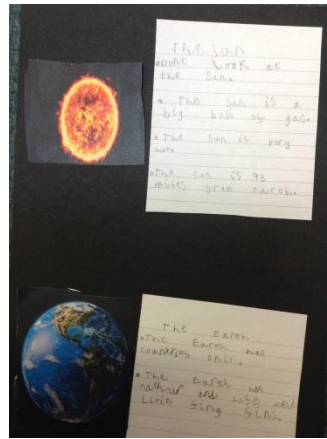 The Sun
•Dont Look at
the Sun.
• The Sun is a
big ball of gas.
•The Sun is very
•The Sun is 93
miles from
The Earth
•The Earth has
countries on it.
•The Earth has
and
Livin